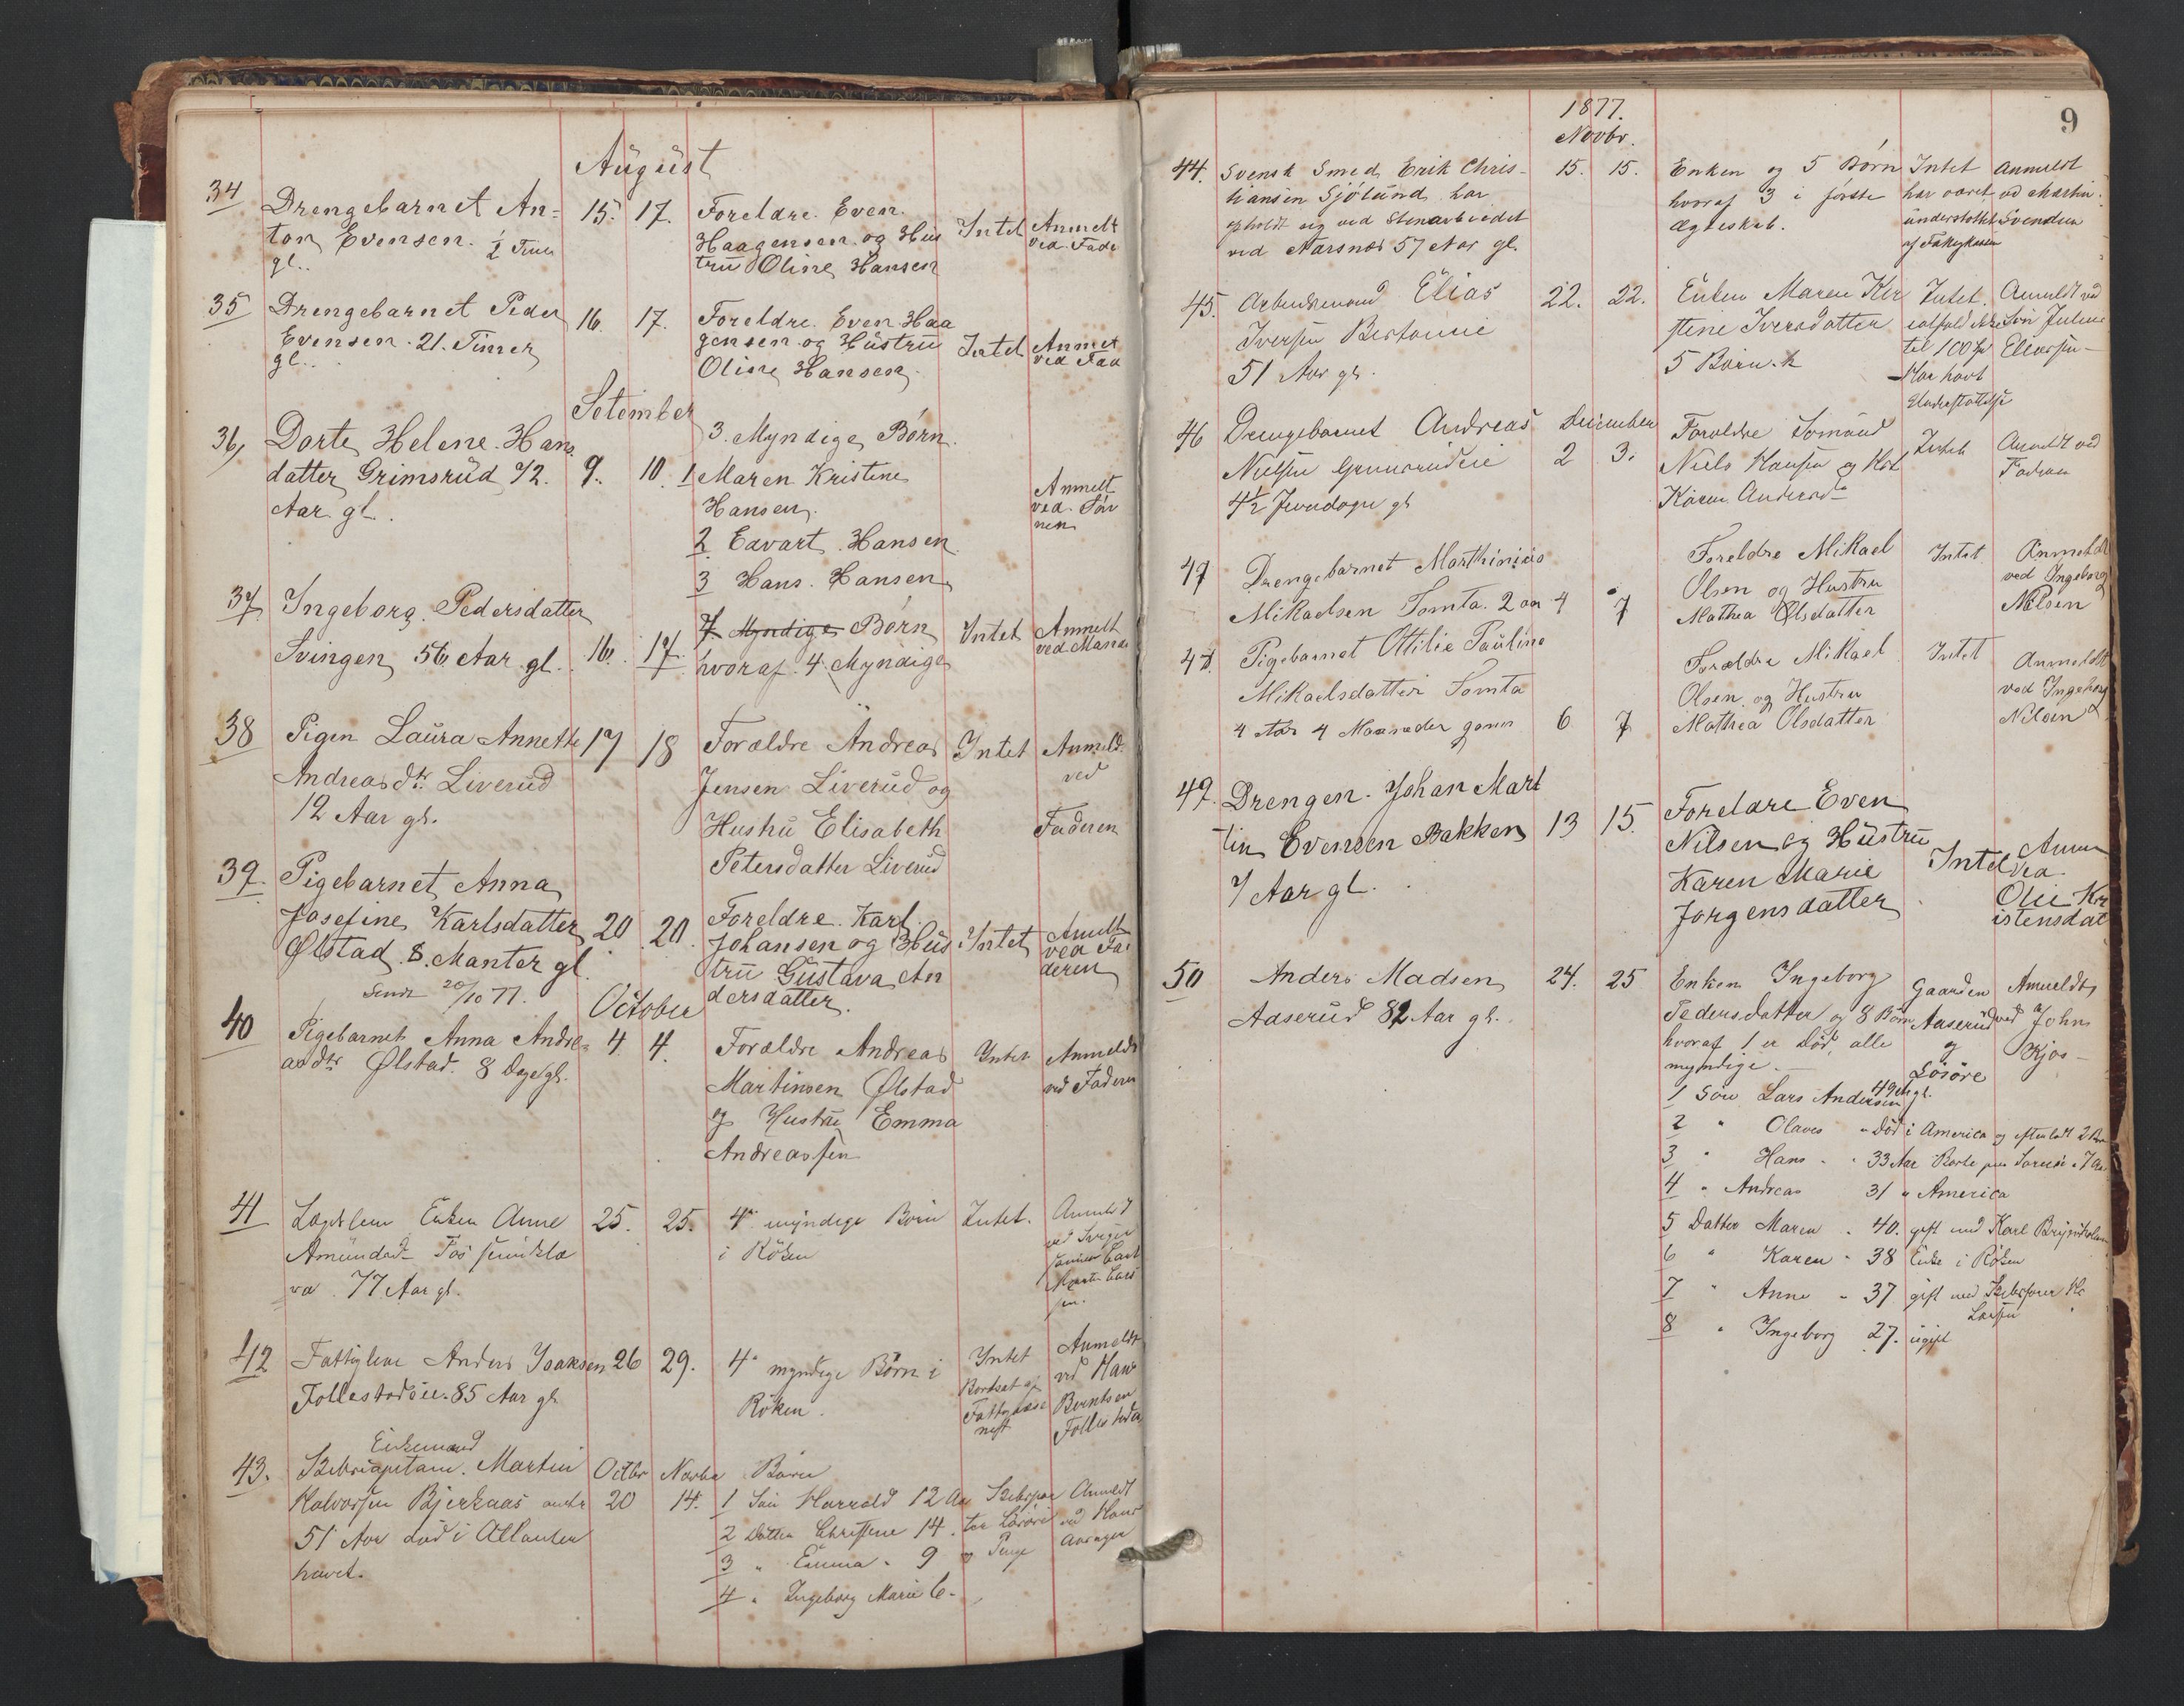 August
34
Drengebarnet An-
ton Evensen. 1/2 Time
gl..
15. 17.
Foreldre. Even.
Haagensen og Hus
tru Oline Hansen
Intet
Anmelt
ved Fade
35
Drengebarnet Peder
Evensen. 21. Timer
gl..
16. 17.
Foreldre. Even Haa
gensen og Hustru
Oline Hansen
Intet
Anmet
ved Faa
Setember
36
Dorte Helene. Hans
datter Grimsrud 72.
Aar. gl.
9. 10.
3. Myndige Børn.
1 Maren Kristine
Hansen.
2 Edvart. Hansen
3 Hans. Hansen
Anmelt
ved. Søn
nen
37
Ingeborg. Pedersdatter
Svingen 56 Aar. gl.
16. 17.
7. Myndige Børn
hvoraf. 4. Myndige
Intet
Anmelt
ved Mand
38
Pigen Laura Annette
Andreasdtr. Liverud
12 Aar gl.
17 18
Forældre Andreas
Jensen Liverud og
Hustru Elisabeth
Petersdatter Liverud
Intet
Anmeld.
ved
Faderen
39.
Pigebarnet Anna
Josefine Karlsdatter
Ølstad. 8. Manter gl.
Sendt 20/10 77.
20 20.
Foreldre. Karl.
Johansen og Hus
tru Gustava An
dersdatter.
Intet
Amelt
ved Fa
deren
October
40
Pigebarnet Anna Andre-
asdtr Ølstad. 8 Dage gl.
4 4.
Forældre Andreas
Martinsen Ølstad
og Hustru Emma
Andreassen
Intet
Anmeldt
ved Faderen
41
Lægdslem Enken Anne
Amundsdtr
va 77 Aar gl.
25. 25.
4 myndige Børn
i Røken
Intet.
Anmeldt
ved Sviger
sen.
42
Fattiglem Anders Isaksen
Follestadeie. 85 Aar gl.
26 29.
4 myndige Børn i
Røken.
Intet
Bortsat af
Fattigkasse
Anmeldt
ved Hans
Berntsen
Follestadeie
43.
Enkemand
Skibscapitain. Martin
Halvorsen Bjerkaas
51 Aar død i Atlanter
havet.
Octbr 20
Novbr 14.
Børn
1 Søn Harrald 12 Aar
2 Datter Christine 14
3 " Emma " 9
4 " Ingeborg Marie 6 -
Løsøre
og Penge
Anmeldt
ved Hans
9
1877.
Novbr.
44.
Svensk Smed Erik Chris-
tiansen Sjølund har
opholdt sig ved Stenarbeidet
ved Nærsnæs 57 Aar gl.
15. 15.
Enken og 5 Børn
hvoraf 3 i første
Ægteskab.
Intet
har været
understøttet
af Fattigkassen
Anmeldt
ved Martin
Svendsen
45.
Arbeidsmand Elias
Iversen
51 Aar gl.
22. 22.
Enken Maren Kir
stine Iversdatter
5 Børn.
Intet.
ialfald ikke
til 100
Har havt
Understøttelse
Anmeldt ved
Søn Julius
Eliassen
December
46
Drengebarnet Andreas
Nielsen Grimsrudeie
4 1/2 Jevndøgn gl
2 3.
Forældre Sømand
Niels Hansen og Hst
Karen Andersd
Intet
Anmeldt ved
Faderen
47
Drengebarnet Marthinius
Mikaelsen Tomta. 2 aar
4 7
Foreldre Mikael
Olsen og Hustru
Mathea Olsdatter
Intet
Anmeldt
ved Ingeborg
Nilsen
48.
Pigebarnet Ottilie Pauline
Mikaelsdatter Tomta
4 Aar 4 Maaneder gamm
6 7
Forældre Mikael
Olsen og Hustru
Mathea Olsdatter
Intet
Anmeldt
ved Ingeborg
Nilsen
49.
Drengen. Johan Mart
tin Evensen Bakken
7 Aar gl.
13 15.
Foreldre Even
Nilsen og Hustru
Karen Marie
Jorgensdatter
Intet
Anm
ved
Olie Kr
istensdat
50
Anders Madsen
Aaserud 82 Aar gl.
24. 25
Enken Ingeborg
Pedersdatter og 8 Børn
hvoraf 1 er død, alle
myndige.
Gaarden
Aaserud
og
Løsøre
Anmeldt
ved John
Kjos
1 Søn Lars Andersen 49 Aar gl.
2 " Olaves " død i America og efterladt 2 Børn
3 " Hans " 33 Aar
4 " Andreas 31 " America
5 Datter Maren " 40. gift med Karl
6 " Karen " 38 Enke i Røken
7 " Anne " 37 gift med Skibsfører
Larsen
8 " Ingeborg 27. ugift